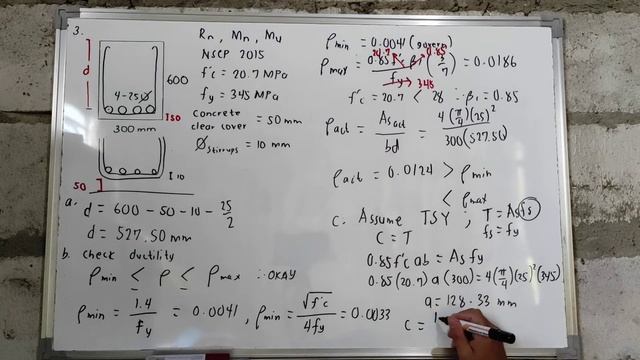 3.
d
600
4-25Ø
150
300 mm
50
I 10
Rn, Mn, Mu
NSCP 2015
f'c = 20.7 MPa
fy = 345 MPa
concrete clear cover = 50 mm
Østirrups = 10 mm
a.
d = 600 - 50 - 10 - 25/2
d = 527.50 mm
b. check ductility
ρmin ≤ ρ ≤ ρmax ∴ OKAY
ρmin = 1.4/fy = 0.0041, ρmin = √f'c/4fy = 0.0033
ρmin = 0.0041 (govern)
20.7 0.85
ρmax = 0.85 f'c β1/fy (3/7) = 0.0186
345
f'c = 20.7 < 28 ∴ β1 = 0.85
ρact = Asact/bd = 4(π/4)(25)²/300(527.50)
ρact = 0.0124 > ρmin
< ρmax
c. Assume TSY; T = Asfs
C = T fs = fy
0.85 f'c ab = As fy
0.85(20.7) a (300) = 4(π/4)(25)²(345)
a = 128.33 mm
c = 1